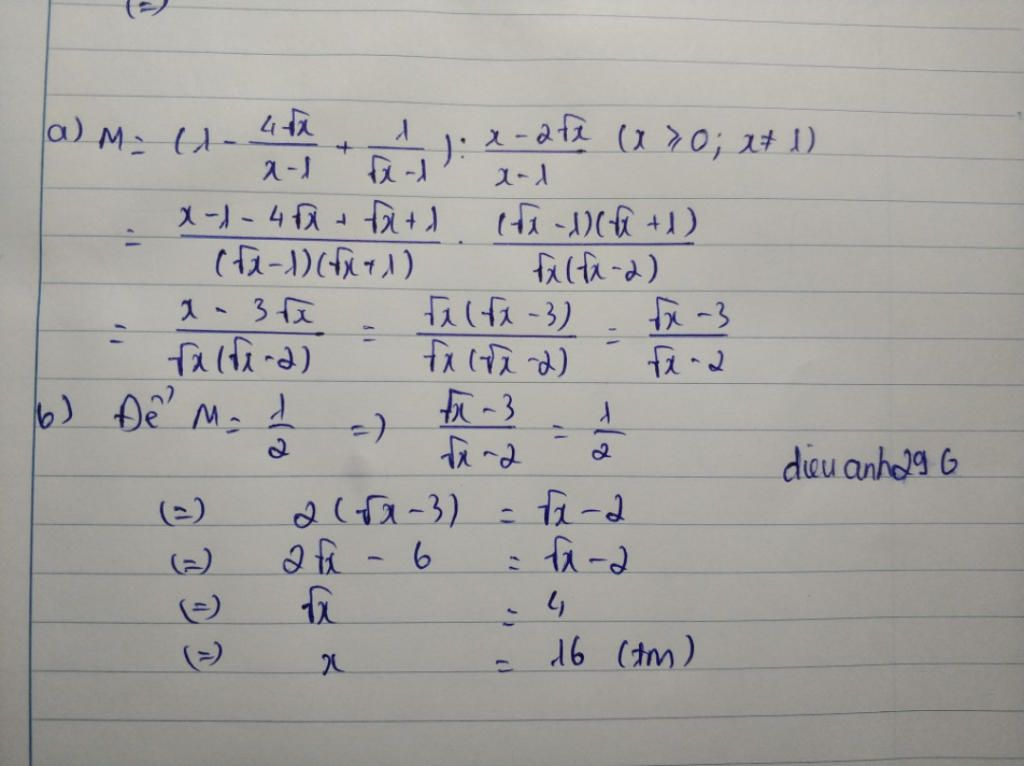 (=)
a) M = (1 - 4√x/x-1 + 1/√x-1) : x-2√x/x-1 (x ⩾ 0; x ≠ 1)
= x-1-4√x+√x+1/(√x-1)(√x+1) . (√x-1)(√x+1)/√x(√x-2)
= x-3√x/√x(√x-2) = √x(√x-3)/√x(√x-2) = √x-3/√x-2
b) Để M = 1/2 =) √x-3/√x-2 = 1/2
dieuanh296
(=) 2(√x-3) = √x-2
(=) 2√x - 6 = √x-2
(=) √x = 4
(=) x = 16 (tm)